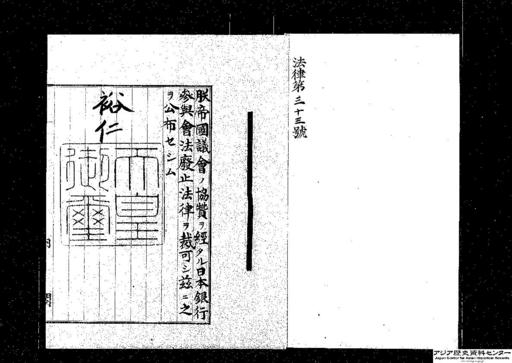 法律第三十三號
朕帝國議會ノ協贊ヲ經タル日本銀行
參與會法廢止法律ヲ裁可シ茲ニ之
ヲ公布セシム
裕仁
天皇
御璽
内閣
アジア歴史資料センター
Japan Center for Asian Historical Records